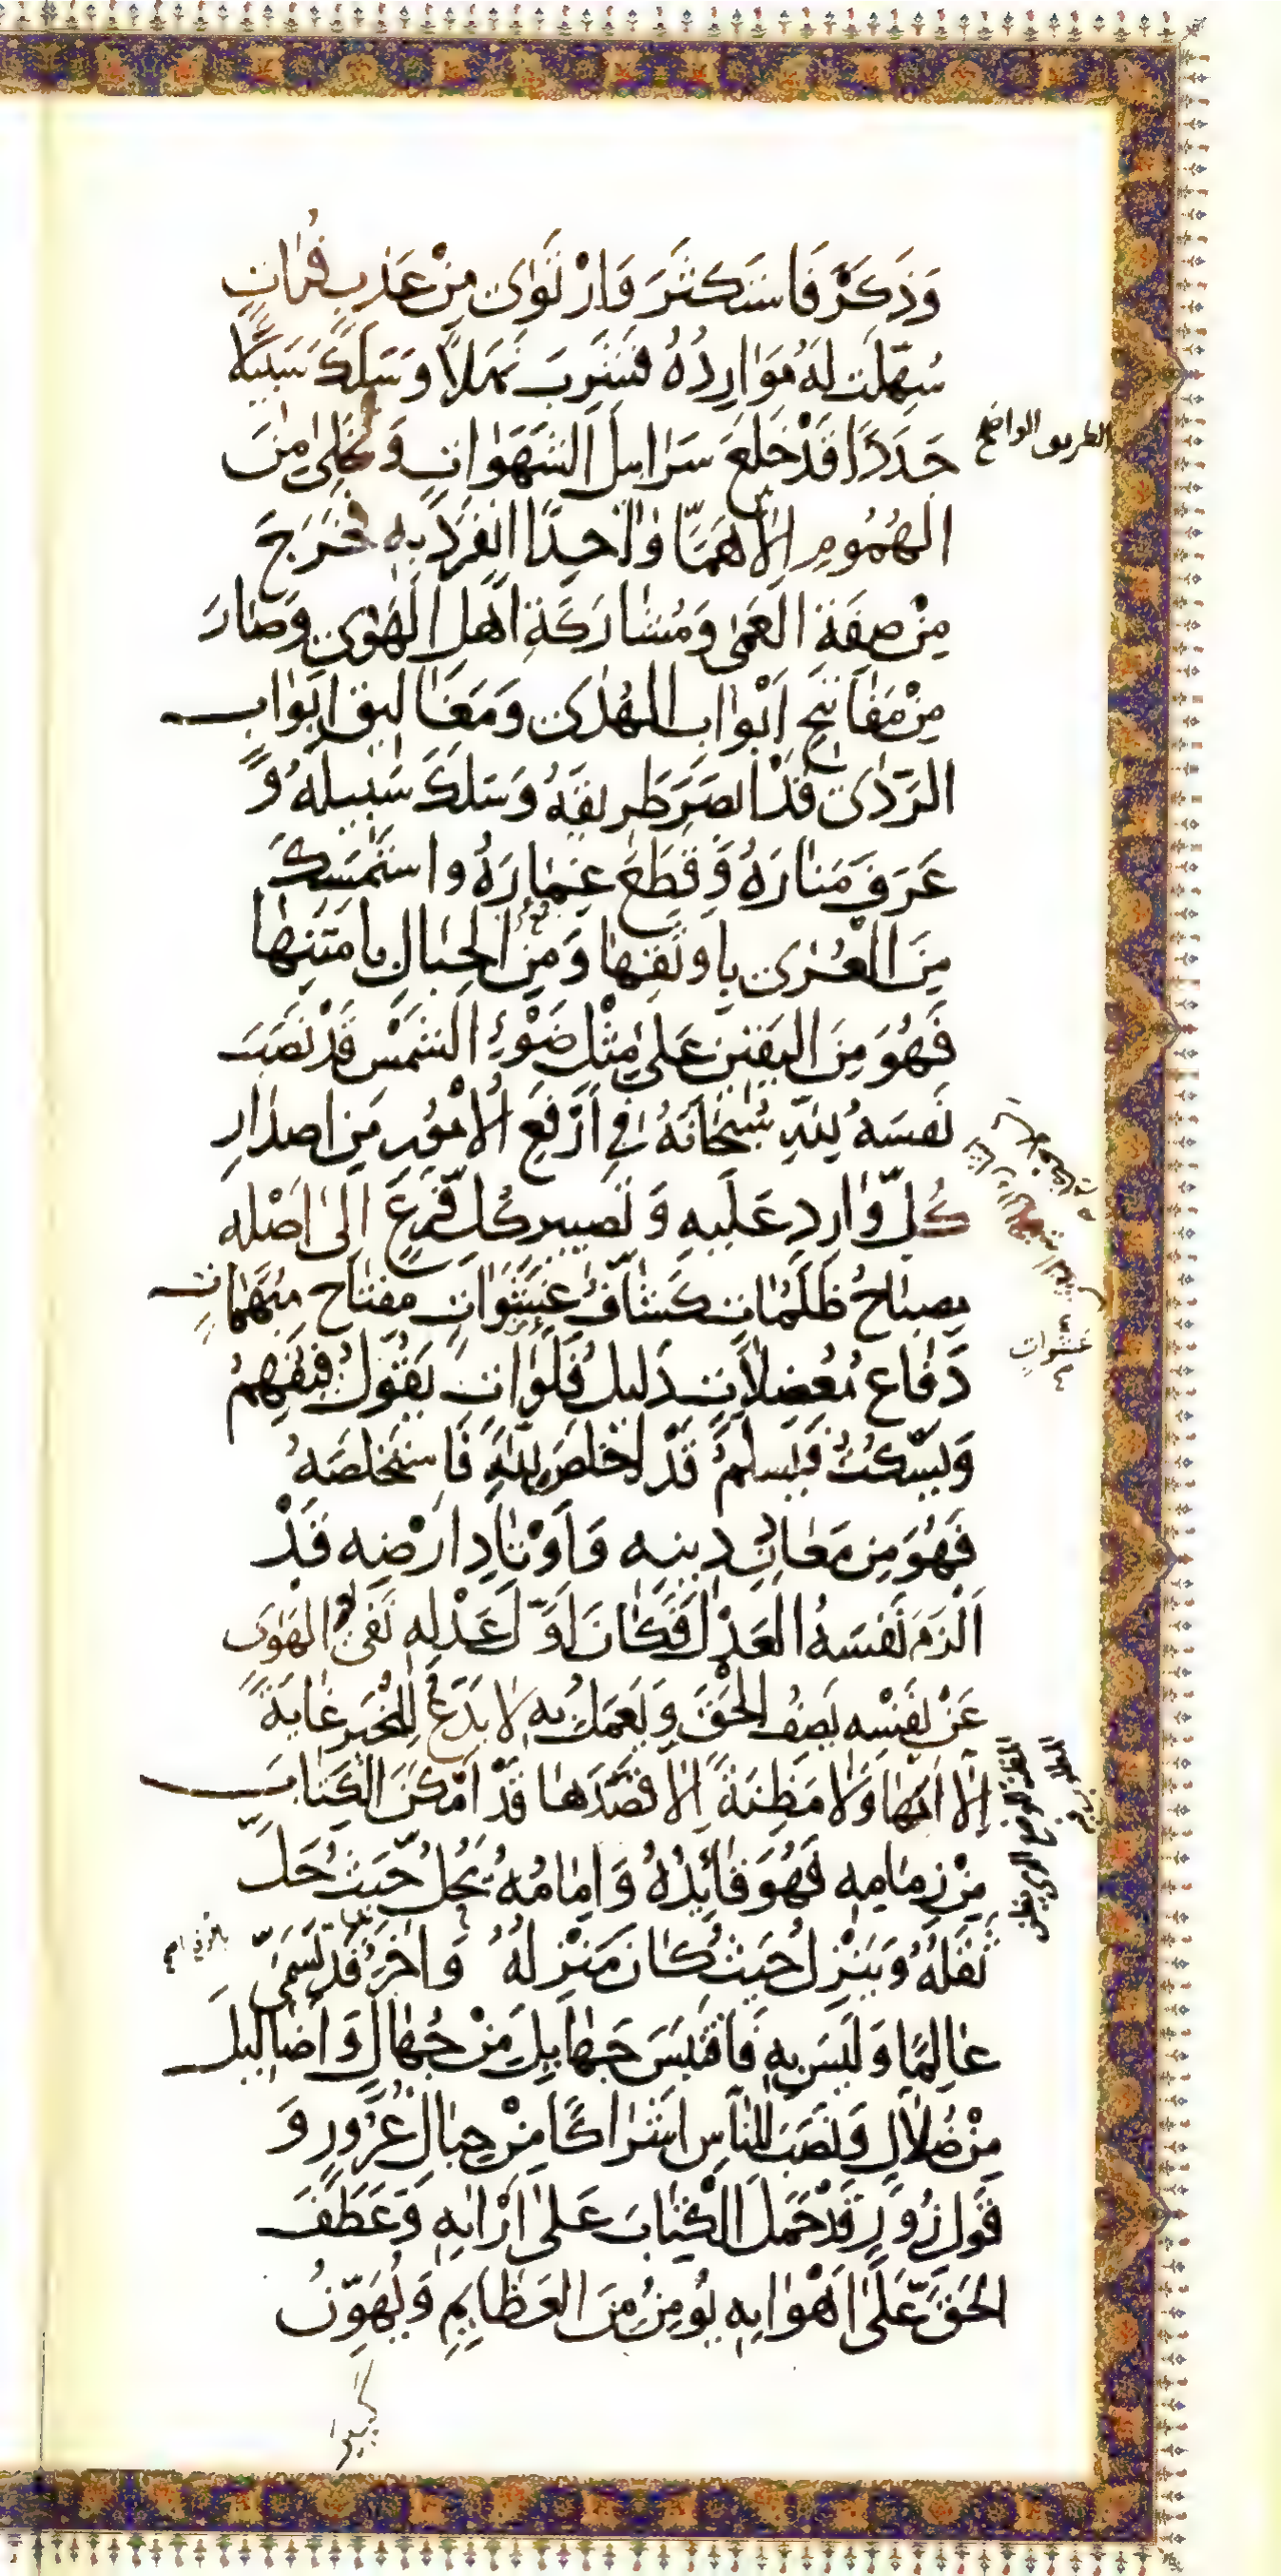 وَذَكَرَ فَاسْتَكْثَرَ وَارْتَوٰى مِنْ عَذْبٍ فُراتٍ
سُهِّلَتْ لَهُ مَوٰارِدُهُ فَشَرِبَ نَهَلاً وَسَلَكَ سَبيلاً
جَدَدًا قَدْ خَلَعَ سَرٰابيلَ الشَّهَوٰاتِ وَتَخَلّىٰ مِنَ
الطريق الواضح
الْهُمُومِ اِلاّٰ هَمًّا وٰاحِدًا انْفَرَدَ بِهِ فَخَرَجَ
مِنْ صِفَةِ الْعَمىٰ وَمُشٰارَكَةِ اَهْلِ الْهَوٰى وَصٰارَ
مِنْ مَفٰاتيحِ اَبْوٰابِ الْهُدٰى وَمَغٰاليقِ اَبْوٰابِ
الرَّدٰى قَدْ اَبْصَرَ طَريقَهُ وَسَلَكَ سَبيلَهُ وَ
عَرَفَ مَنٰارَهُ وَقَطَعَ غِمٰارَهُ وَاسْتَمْسَكَ
مِنَ الْعُرٰى بِاَوْثَقِهٰا وَمِنَ الْحِبٰالِ بِاَمْتَنِهٰا
فَهُوَ مِنَ الْيَقينِ عَلىٰ مِثْلِ ضَوْءِ الشَّمْسِ قَدْ نَصَبَ
نَفْسَهُ لِلّٰهِ سُبْحٰانَهُ فى اَرْفَعِ الْاُمُورِ مِنْ اِصْدٰارِ
كُلِّ وٰارِدٍ عَلَيْهِ وَتَصْييرِ كُلِّ فَرْعٍ اِلىٰ اَصْلِهِ
مِصْبٰاحُ ظُلُمٰاتٍ كَشّٰافُ عَشَوٰاتٍ مِفْتٰاحُ مُبْهَمٰاتٍ
عشوات
دَفّٰاعُ مُعْضِلاٰتٍ دَليلُ فَلَوٰاتٍ يَقُولُ فَيُفْهِمُ
وَيَسْكُتُ فَيَسْلَمُ قَدْ اَخْلَصَ لِلّٰهِ فَاسْتَخْلَصَهُ
فَهُوَ مِنْ مَعٰادِنِ دينِهِ وَاَوْتٰادِ اَرْضِهِ قَدْ
اَلْزَمَ نَفْسَهُ الْعَدْلَ فَكٰانَ اَوَّلَ عَدْلِهِ نَفْىُ الْهَوٰى
عَنْ نَفْسِهِ يَصِفُ الْحَقَّ وَيَعْمَلُ بِهِ لاٰ يَدَعُ لِلْخَيْرِ غٰايَةً
اِلاّٰ اَمَّهٰا وَلاٰ مَظِنَّةً اِلاّٰ قَصَدَهٰا قَدْ اَمْكَنَ الْكِتٰابَ
مِنْ زِمٰامِهِ فَهُوَ قٰائِدُهُ وَاِمٰامُهُ يَحُلُّ حَيْثُ حَلَّ
ثَقَلُهُ وَيَنْزِلُ حَيْثُ كٰانَ مَنْزِلُهُ وَاٰخَرُ قَدْ تَسَمّىٰ
عٰالِمًا وَلَيْسَ بِهِ فَاقْتَبَسَ جَهٰايِلَ مِنْ جُهّٰالٍ وَاَضٰاليلَ
مِنْ ضُلاّٰلٍ وَنَصَبَ لِلنّٰاسِ اَشْرٰاكًا مِنْ حِبٰالِ غُرُورٍ وَ
قَوْلِ زُورٍ قَدْ حَمَلَ الْكِتٰابَ عَلىٰ اٰرٰايِهِ وَعَطَفَ
الْحَقَّ عَلىٰ اَهْوٰايِهِ يُومِنُ مِنَ الْعَظٰايِمِ وَيُهَوِّنُ
كبير